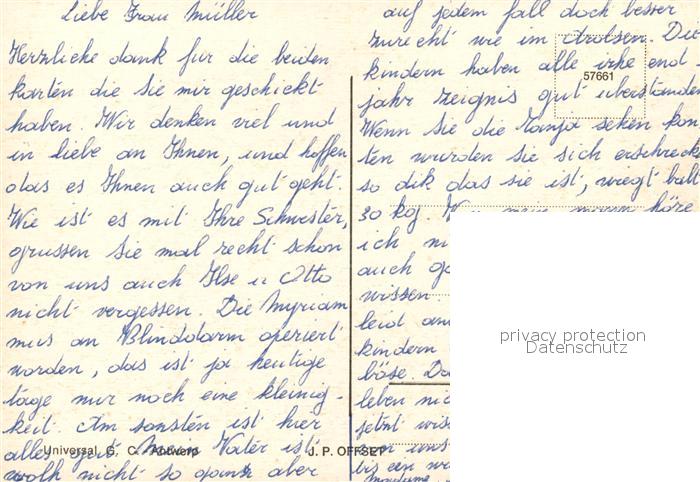 Liebe Frau Müller
Herzlieke dank fur die beiden
karten die Sie mir geschickt
haben. Wir denken viel und
in liebe an Ihnen, und hoffen
das es Ihnen auch gut geht.
Wie ist es mit Ihre Schwester,
grussen Sie mal recht schon
von uns auch Ilse u Otto
nicht vergessen. Die Myriam
mus an Blinddarm operiert
worden, das ist ja heutige
tage nur noch eine kleinig-
keit. Am sonsten ist hier
alles gut. Mein Vater ist
wolh nicht so ganz aber
Universal G. C. Antwerp
J. P. OFFSET
auf jedem fall doch besser
zurecht wie im Arolsen. Die
kindern haben alle ihre end-
jahr zeignis gut uberstanden
57661
Wenn Sie die Tanja sehen kon-
ten wurden Sie sich erschreck
so dik das sie ist, wiegt balt
30 kg. Von mein mann höre
ich
auch
wissen
leid
kindern
böse.
leben
jetzt
privacy protection
Datenschutz